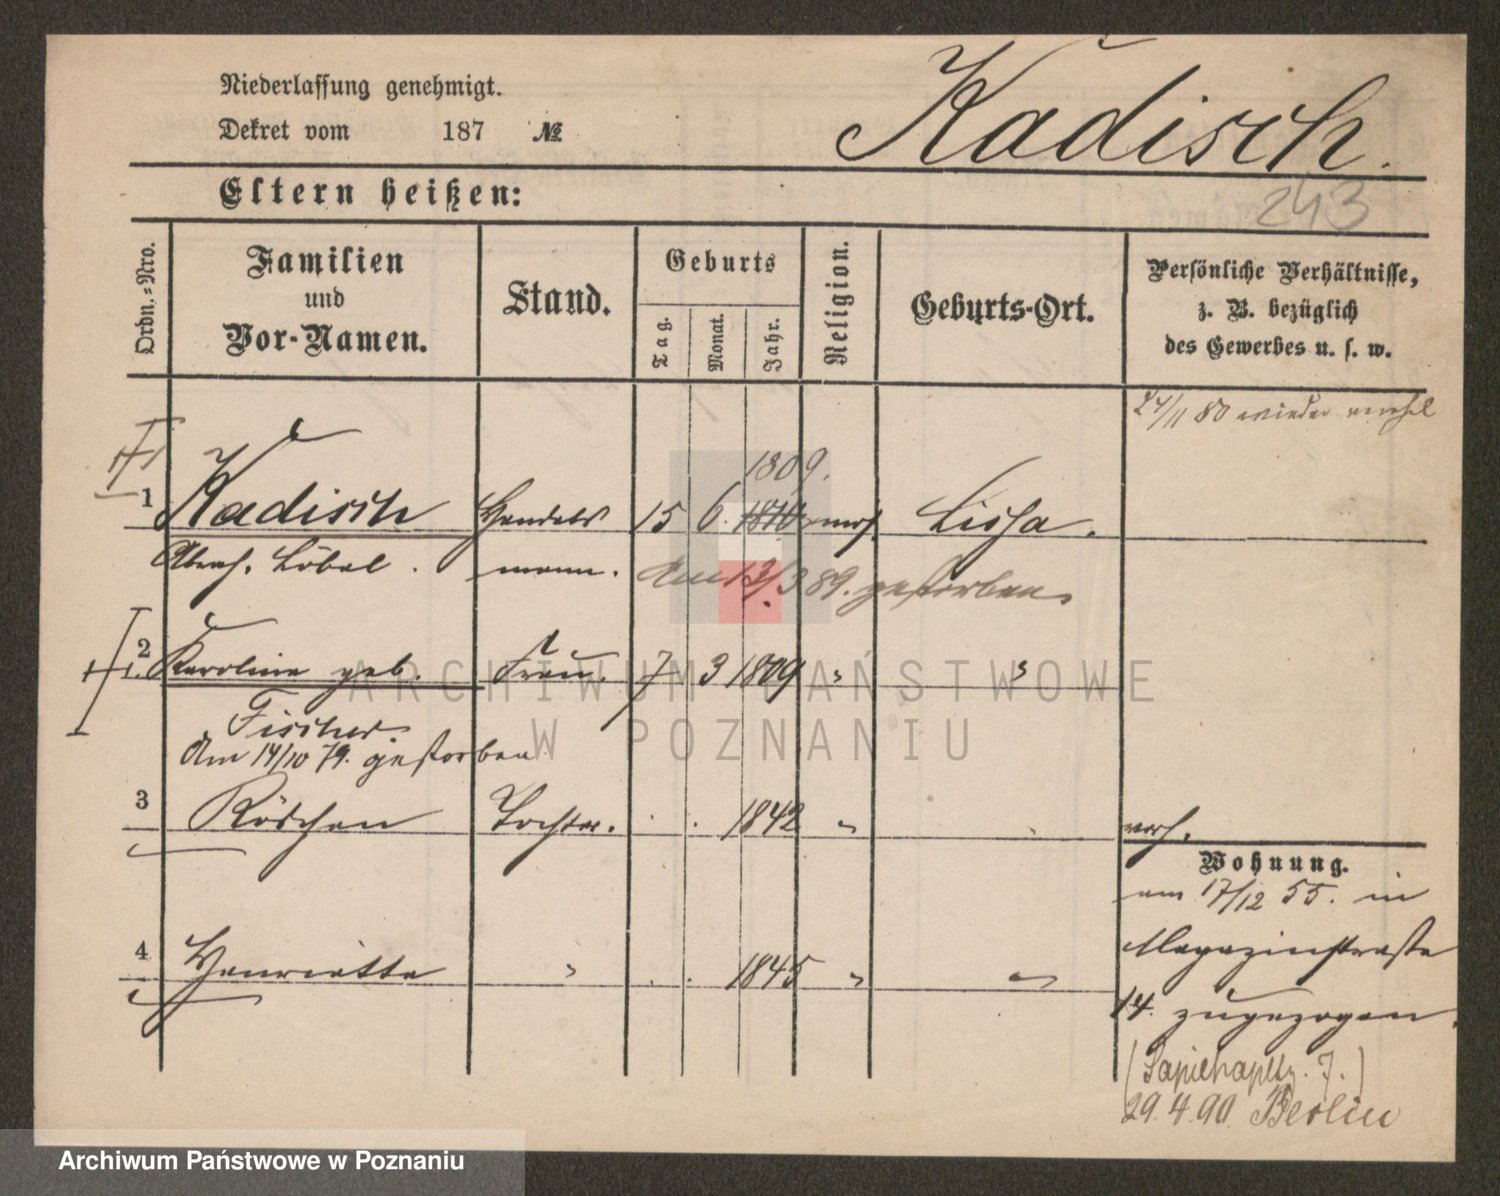 Niederlassung genehmigt.
Dekret vom 187 №
Kadisch.
243
Eltern heißen:
Ordn.-Nro.
Familien
und
Vor-Namen.
Stand.
Geburts
Tag.
Monat.
Jahr.
Religion.
Geburts-Ort.
Persönliche Verhältnisse,
z. B. bezüglich
des Gewerbes u. s. w.
24/11 80 wieder
1809.
1 Kadisch Handels 15 6. 1810 mos. Lissa.
Abrah. Löbel. mann. Am 13/3 89. gestorben
2 Karoline geb. Frau. 7 3 1809 " "
Fischer
Am 14/10 79. gestorben
3 Röschen Tochter. 1842 "
verh.
Wohnung.
am 17/12 55. in
Magazinstraße
14. zugezogen.
4 Henriette " 1845 " "
(Sapiehapltz. 7.)
29.4.90. Berlin
ARCHIWUM PAŃSTWOWE
W POZNANIU
Archiwum Państwowe w Poznaniu